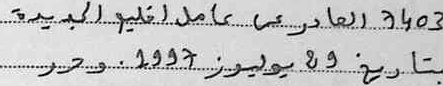 7403 الصادر عن عامل اقليم الجديدة
بتاريخ 29 يوليوز 1997. وحرر